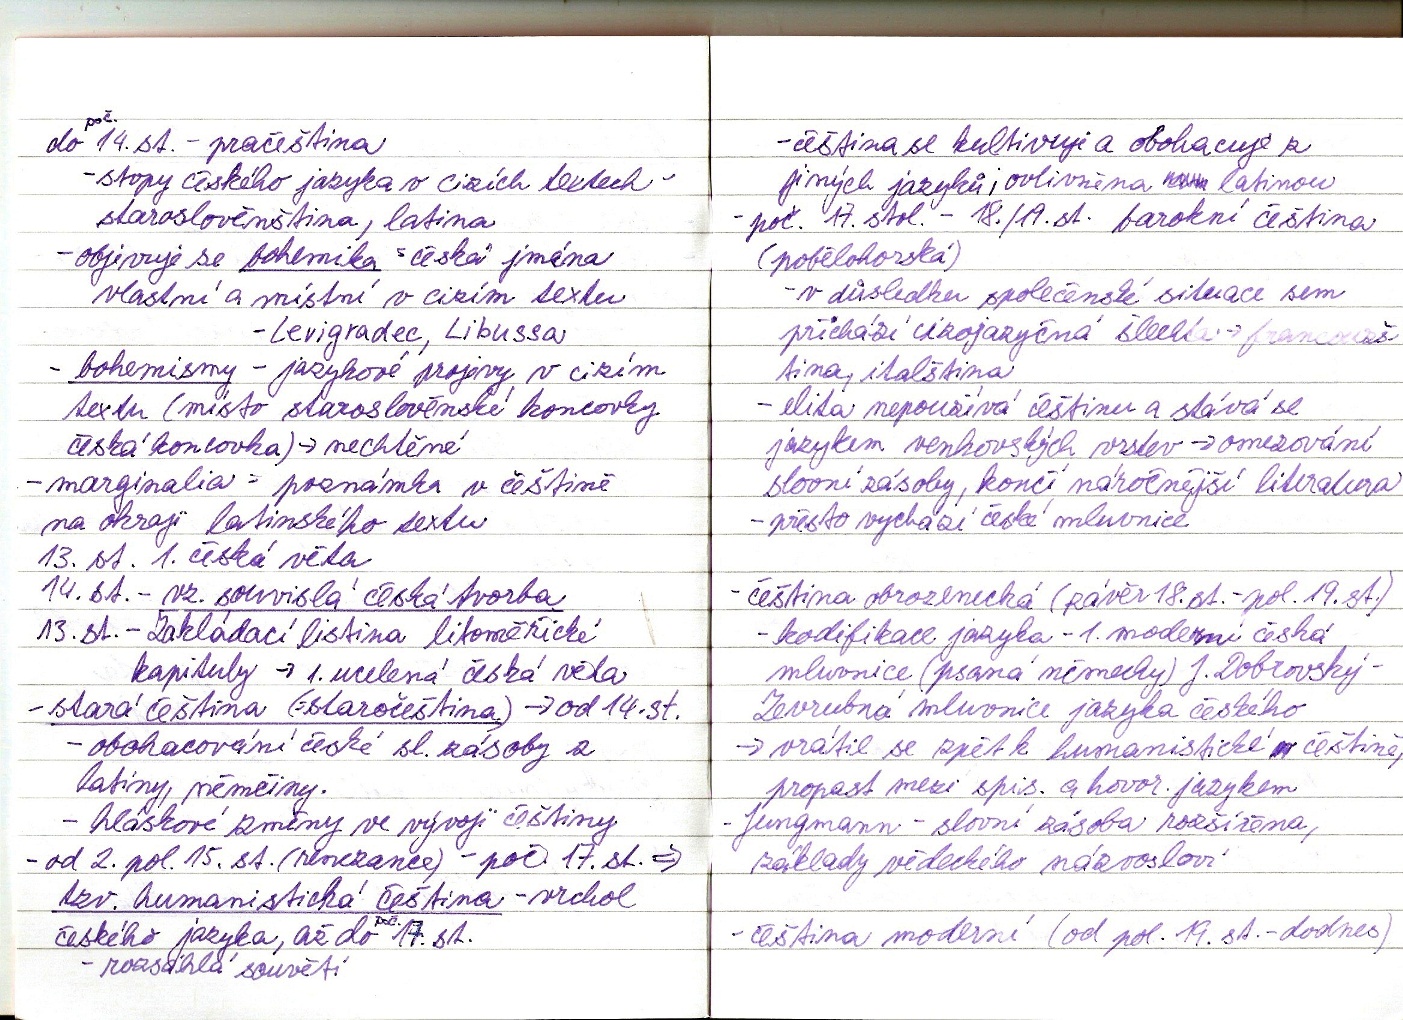 do poč. 14. st. - pračeština
- stopy českého jazyka v cizích textech -
staroslověnština, latina
- objevuje se bohemika = česká jména
vlastní a místní v cizím textu
- Levigradec, Libussa
- bohemismy - jazykové projevy v cizím
textu (místo staroslověnské koncovky
česká koncovka) → nechtěné
- marginalia = poznámka v češtině
na okraji latinského textu
13. st. 1. česká věta
14. st. - vz. souvislá česká tvorba
13. st. - Zakládací listina litoměřické
kapituly → 1. ucelená česká věta
- stará čeština (=staročeština) → od 14. st.
- obohacování české sl. zásoby z
latiny, němčiny.
- hláskové změny ve vývoji češtiny
- od 2. pol. 15. st. (renezance) - poč. 17. st. ⇒
tzv. humanistická čeština - vrchol
českého jazyka, až do poč. 17. st.
- rozsáhlá souvětí
- čeština se kultivuje a obohacuje z
jiných jazyků, ovlivněna latinou
- poč. 17. stol. - 18./19. st. barokní čeština
(pobělohorská)
- v důsledku společenské situace sem
přichází cizojazyčná šlechta → francouzš
tina, italština
- elita nepoužívá češtinu a stává se
jazykem venkovských vrstev → omezování
slovní zásoby, končí náročnější literatura
- přesto vychází české mluvnice
- čeština obrozenecká (závěr 18. st. - pol. 19. st.)
- kodifikace jazyka - 1. moderní česká
mluvnice (psaná německy) J. Dobrovský -
Zevrubná mluvnice jazyka českého
→ vrátil se zpět k humanistické češtině,
propast mezi spis. a hovor. jazykem
- Jungmann - slovní zásoba rozšířena,
základy vědeckého názvosloví
- čeština moderní (od pol. 19. st. - dodnes)